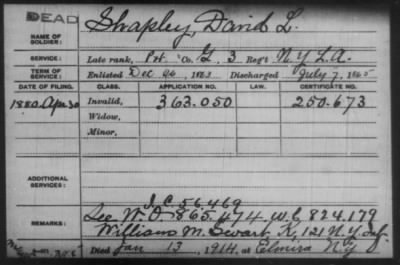 DEAD
NAME OF SOLDIER: Shapley, David L.
SERVICE: Late rank, Pvt. Co. G, 3 Reg't N.Y.L.A.
TERM OF SERVICE: Enlisted Dec 26, 1863 Discharged July 7, 1865
DATE OF FILING. CLASS. APPLICATION NO. LAW. CERTIFICATE NO.
1880 Apr. 30 Invalid, 363.050 250.673
Widow,
Minor,
ADDITIONAL SERVICES:
I.C. 56469
REMARKS: See W.O. 865.474 W.C. 824.179
William M. Sewart K, 121 N.Y. Inf.
Died Jan 13, 1914, at Elmira N.Y.